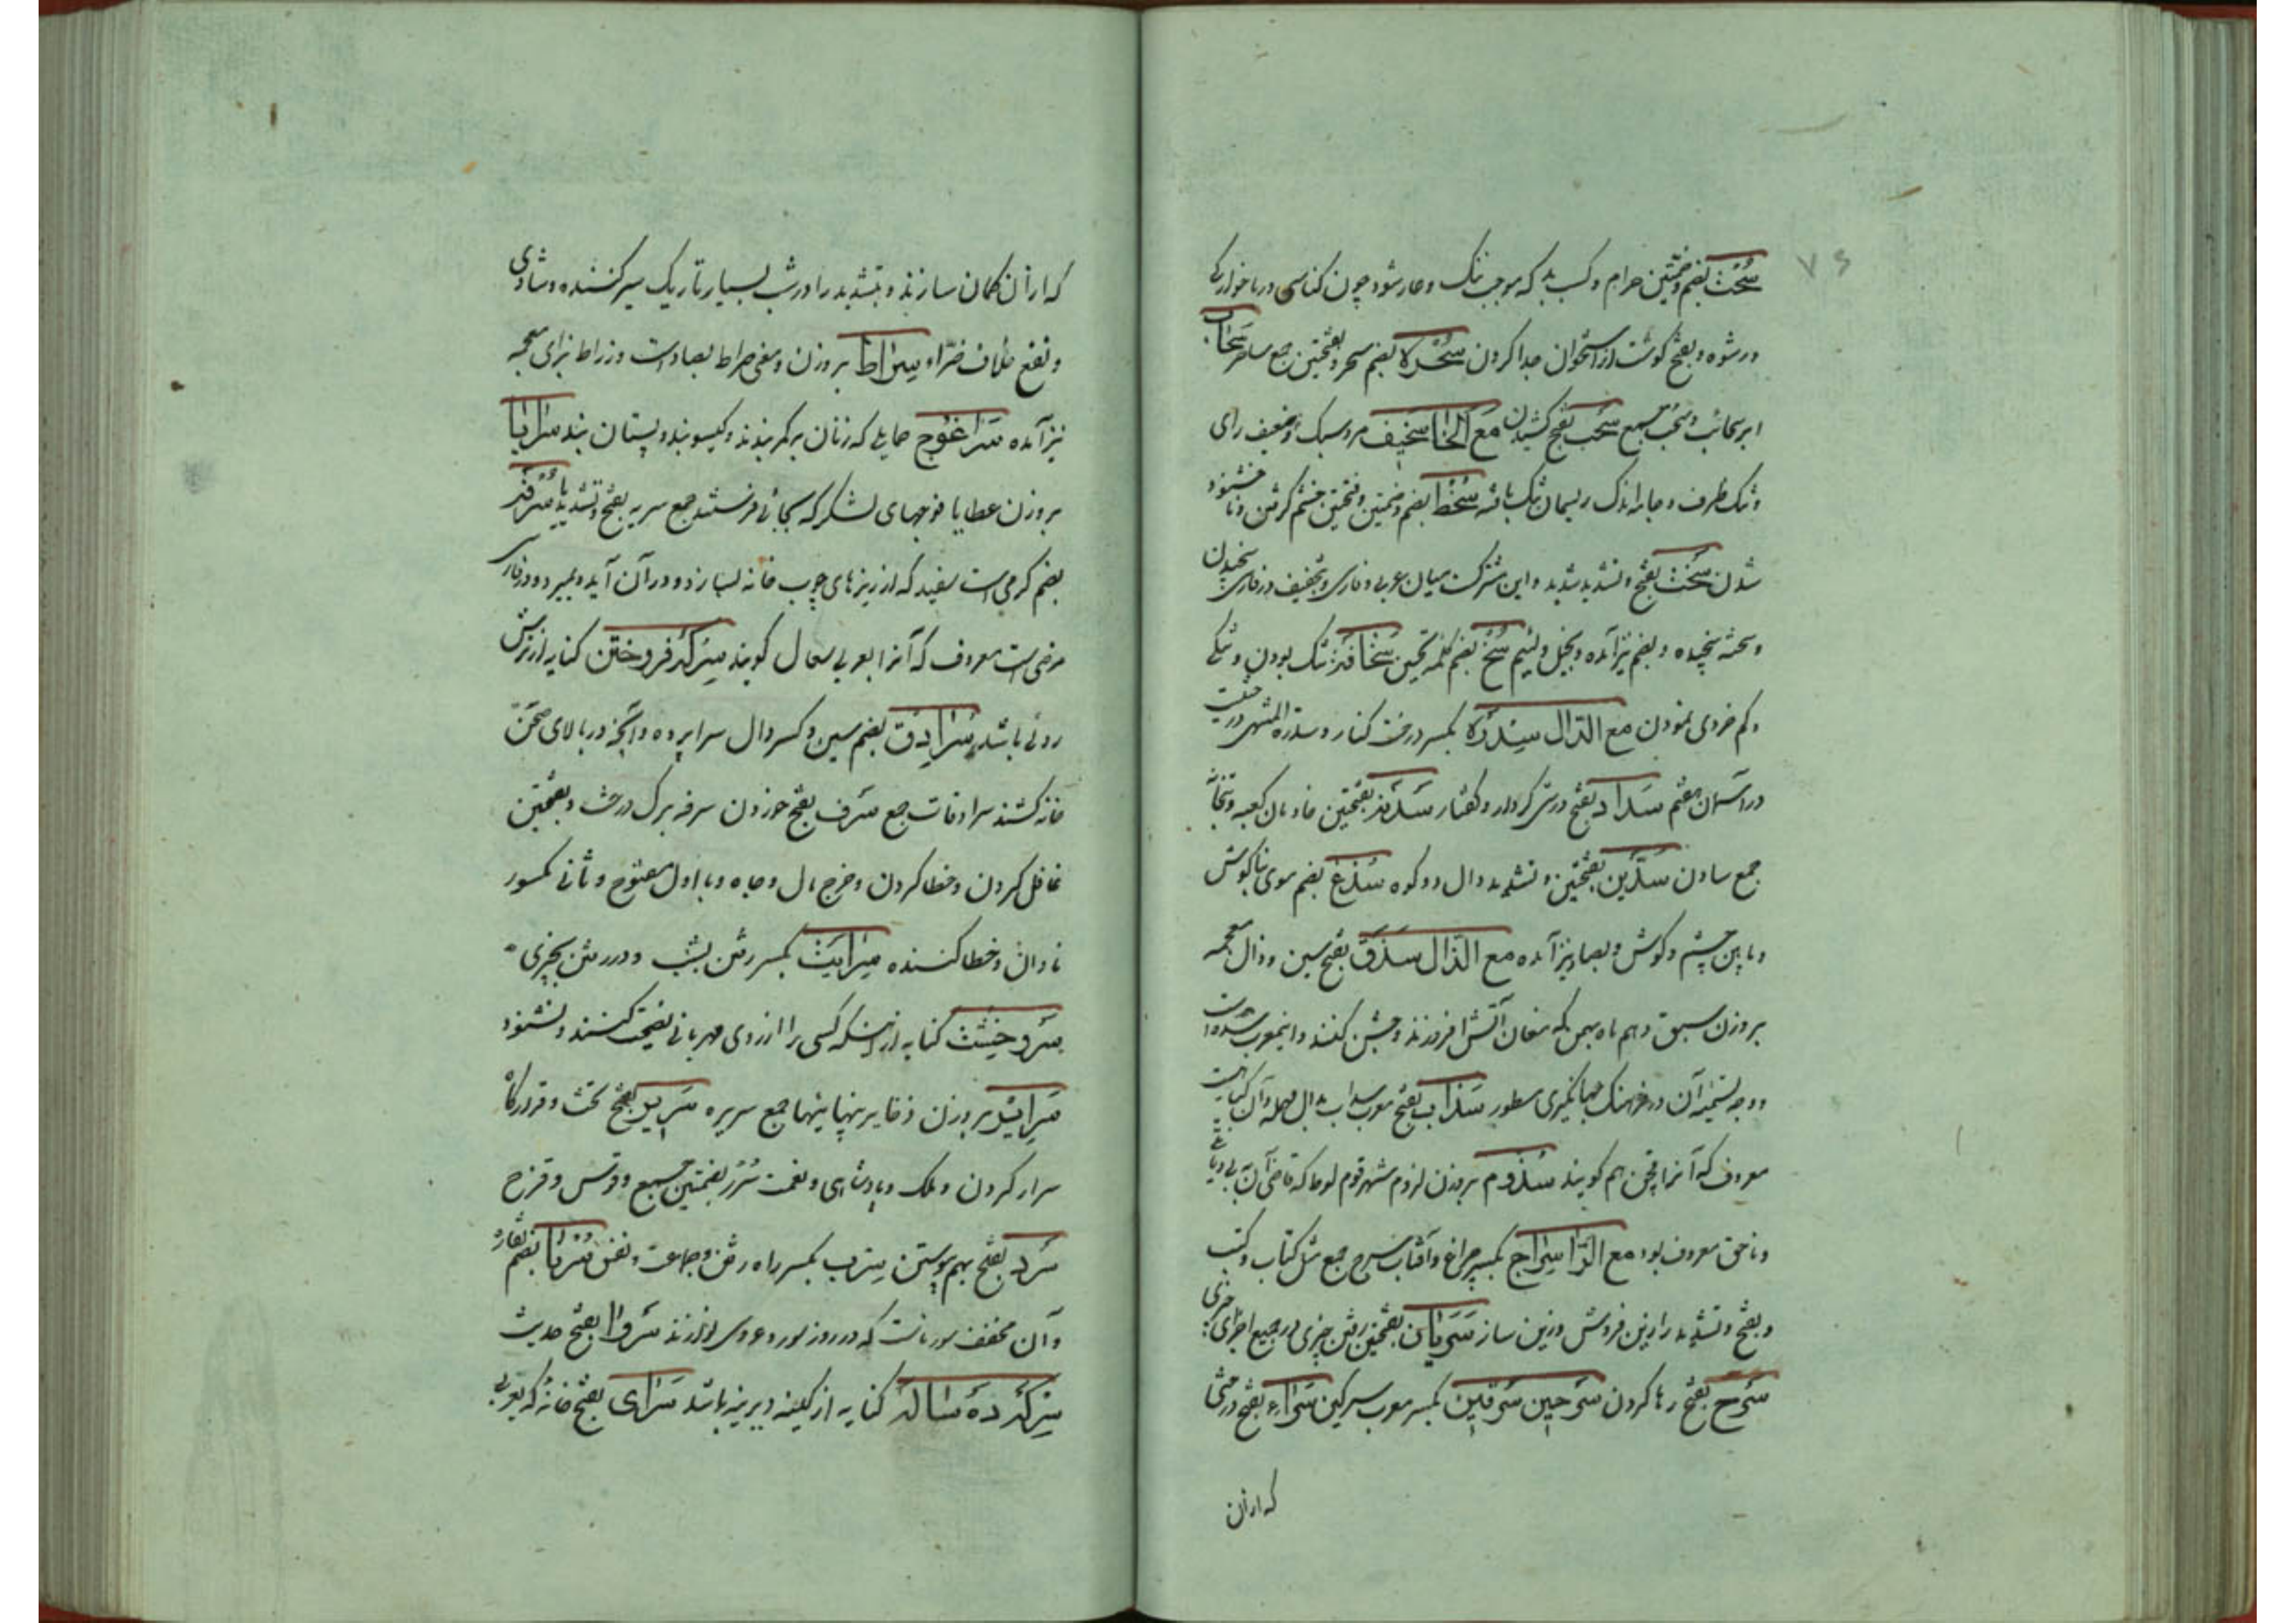 سُحْت بضم و ضمتین حرام و کسب بد که موجب ننک و عار شود چون کناسی و رباخوارکی
و رشوه و بفتح کوشت از استخوان جدا کردن سَحَرَه بضم سحر و بفتحتین جمع ساحر سَحاب
ابر سحائب و سُحُب جمع سَحْب بفتح کشیدن مَعَ الخا سَخیف مرد سبک و ضعیف رای
و تنک ظرف و جامه اندک ریسمان تنک بافته سُخْط بضم و ضمتین و فتحتین خشم کرفتن و ناخشنود
شدن سَخْت بفتح و تشدید شدید و این مشترکست میان عربی و فارسی و بتخفیف در فارسی سنجیدن
و سخته سنجیده و بضم نیز آمده و بخیل و لئیم سُخ بضم کلمه تحسین سَخافَة تنک بودن و تنکی
و کم خردی نمودن مع الدّال سِدْرَه بکسر درخت کنار و سدرة المنتهی درختیست
در آسمان هفتم سَداد بفتح درستی کردار و کفتار سَدَنَه بفتحتین خادمان کعبه و بتخانه
جمع سادن سَدَّین بفتحتین و تشدید دال دو کوه سُدْغ بضم موی بناکوش
و مابین چشم و کوش و بصاد نیز آمده مع الذّال سَذَق بفتح سین و ذال معجمه
بر وزن سبق دهم ماه بهمن که مغان آتش افروزند و جشن کنند و این معرب سده است
و وجه تسمیه آن در فرهنک جهانکیری مسطور سَذاب بفتح معرب سداب بدال مهمله و آن کیاهیست
معروف که آنرا فیجن هم کویند سَذوم بر وزن لزوم شهر قوم لوط که قاضی آن به بی دیانتی
و ناحق معروف بود مع الرّا سِراج بکسر چراغ و آفتاب سُرُج جمع مثل کتاب و کتب
و بفتح و تشدید را زین فروش و زین ساز سَرَیان بفتحتین رفتن چیزی در جمیع اجزای چیزی
سَرْح بفتح رها کردن سِرجین سِرقین بکسر معرب سرکین سَراء بفتح درختی
که از آن
که از آن کمان سازند و بتشدید را در شب بسیار تاریک سیر کننده و شادی
و نفع خلاف ضرّاء سِراط بر وزن و معنی صراط بصاد است و زراط بزای معجمه
نیز آمده سَراغوج حمایلی که زنان بر کمر بندند و کیسو بند و پستان بند سَرایا
بر وزن عطایا فوجهای لشکر که بجائی فرستند جمع سریه بفتح و تشدید یا سُرْفَه
بضم کرمی است سفید که از ریزهای چوب خانه بسازد و در آن آید و بمیرد و در فارسی
مرضی است معروف که آنرا بعربی سعال کویند سِرکه فروختن کنایه از ترش
روئی باشد سُرادِق بضم سین و کسر دال سرا پرده و آنچه در بالای صحن
خانه کشند سرادقات جمع سَرْف بفتح خوردن سرفه برک درخت و بفتحتین
غافل کردن و خطا کردن و خرج مال و جاه و با اول مفتوح و ثانی مکسور
نادان و خطا کننده سِرایت بکسر رفتن بشب و در رفتن بچیزی
سَرد خشت کنایه از آنکه کسی را از روی مهربانی نصیحت کنند و نشنود
سَرایِر بر وزن ذخایر پنهانیها جمع سریره سَریر بفتح تخت و قرارکاه
سرار کردن و ملک و پادشاهی و نعمت سُرُر بضمتین جمع و قوس و قزح
سَرْد بفتح بهم پیوستن سِرْب بکسر راه رفتن و جماعت و نفس سُرنا بضم نقاره
و آن مخفف سورناست که در روز سور و عروسی نوازند سَروا بفتح حدیث
سِرکه ده ساله کنایه از کینه دیرینه باشد سَرای بفتح خانه که بعربی